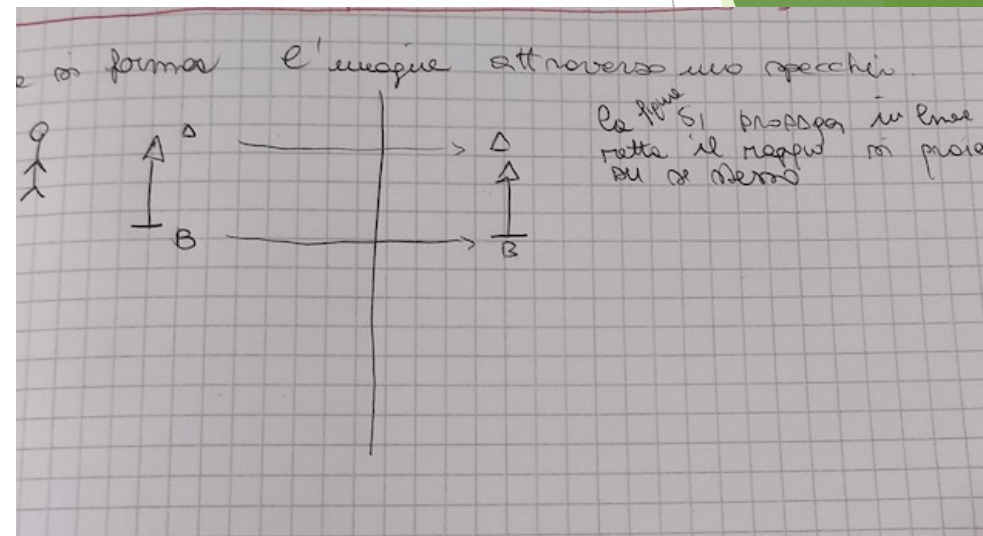 e si forma l'immagine attraverso uno specchio.
A A
B B
la figura si propaga in linea
retta il raggio si proie
su se stesso